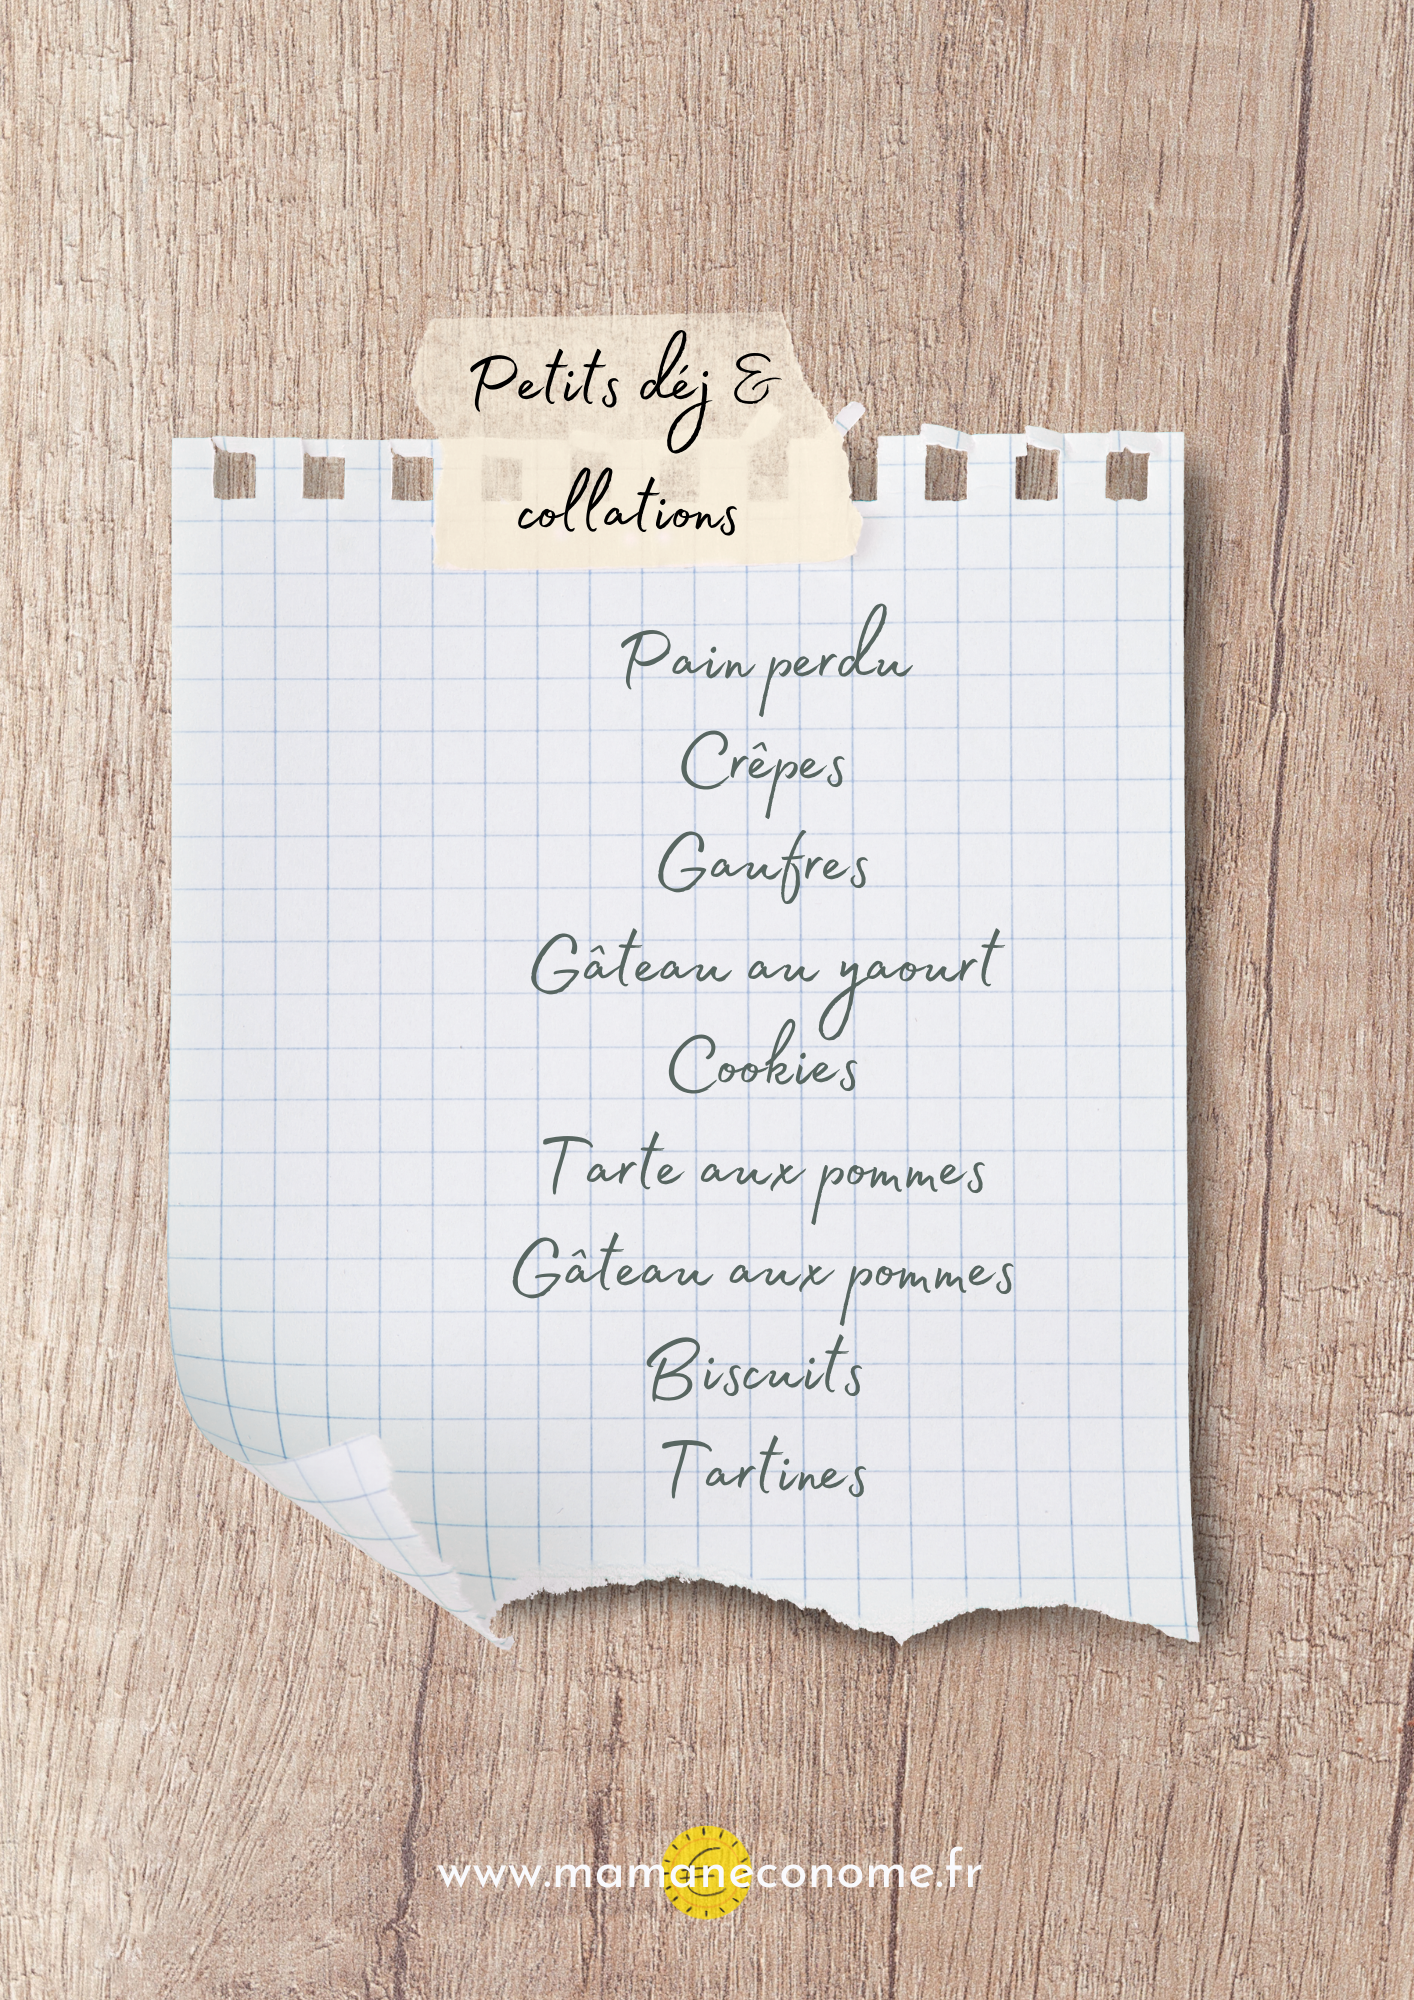 Petits déj &
collations
Pain perdu
Crêpes
Gaufres
Gâteau au yaourt
Cookies
Tarte aux pommes
Gâteau aux pommes
Biscuits
Tartines
www.mamaneconome.fr